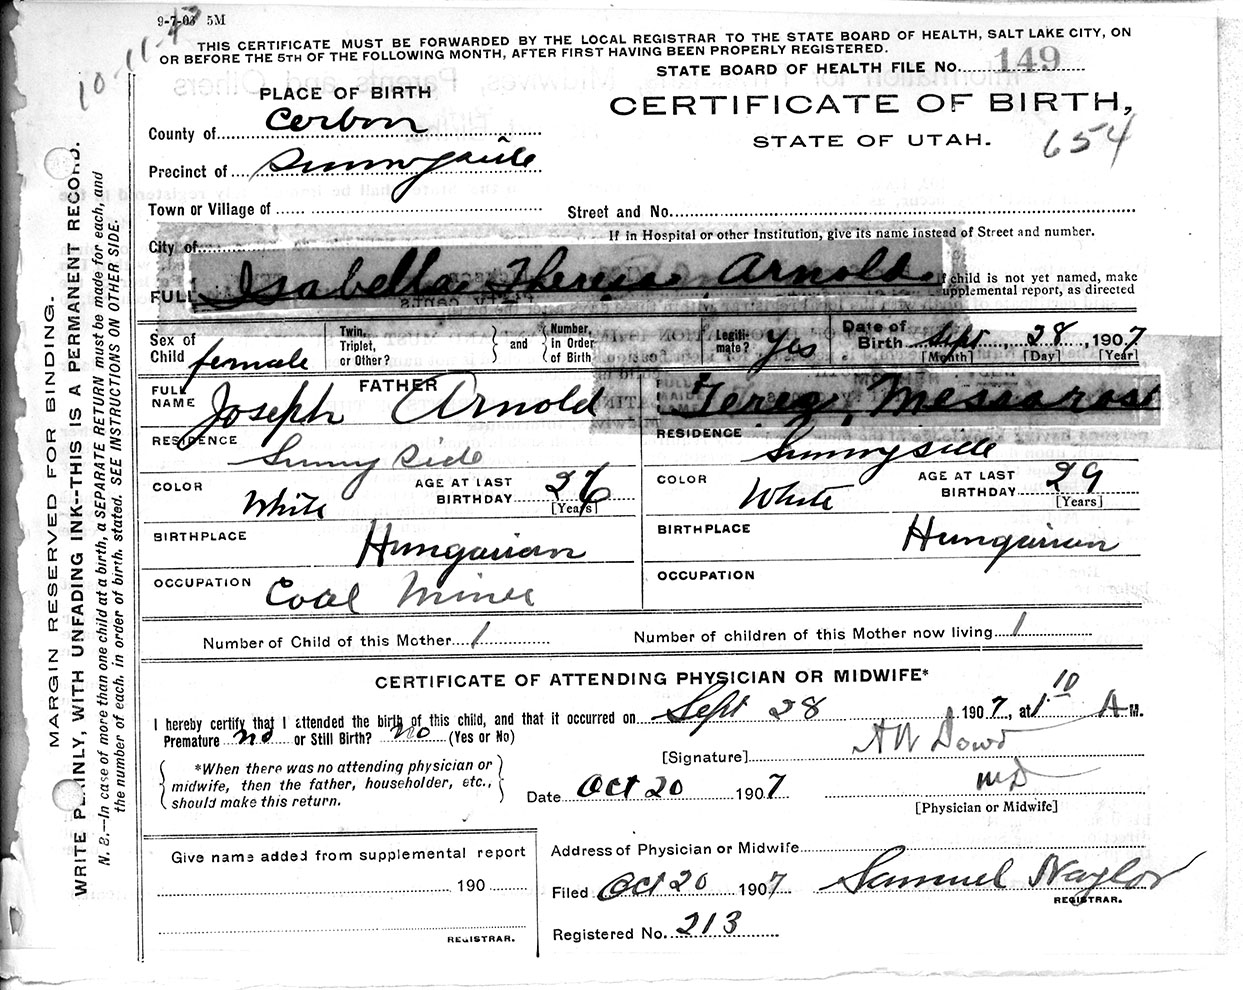 9-7-03 5M
10-11-
THIS CERTIFICATE MUST BE FORWARDED BY THE LOCAL REGISTRAR TO THE STATE BOARD OF HEALTH, SALT LAKE CITY, ON
OR BEFORE THE 5TH OF THE FOLLOWING MONTH, AFTER FIRST HAVING BEEN PROPERLY REGISTERED.
STATE BOARD OF HEALTH FILE No. 149
PLACE OF BIRTH
CERTIFICATE OF BIRTH,
STATE OF UTAH.
654
County of Carbon
Precinct of Sunnyside
Town or Village of
Street and No.
City of
If in Hospital or other Institution, give its name instead of Street and number.
FULL Isabella Theresa Arnold
If child is not yet named, make
supplemental report, as directed
Sex of Child female
Twin, Triplet, or Other? } and { Number, in Order of Birth
Legiti- mate? Yes
Date of Birth Sept 28, 1907
[Month] [Day] [Year]
FATHER
FULL NAME Joseph Arnold
Terez, Messarosi
RESIDENCE Sunny Side
RESIDENCE Sunnyside
COLOR White
AGE AT LAST BIRTHDAY 26 [Years]
COLOR White
AGE AT LAST BIRTHDAY 29 [Years]
BIRTHPLACE Hungarian
BIRTHPLACE Hungarian
OCCUPATION Coal Miner
OCCUPATION
Number of Child of this Mother 1
Number of children of this Mother now living 1
CERTIFICATE OF ATTENDING PHYSICIAN OR MIDWIFE*
I hereby certify that I attended the birth of this child, and that it occurred on Sept 28 1907, at 1 10 A M.
Premature no or Still Birth? no (Yes or No)
*When there was no attending physician or
midwife, then the father, householder, etc.,
should make this return.
[Signature] A W Dowd
MD
Date Oct 20 1907
[Physician or Midwife]
Give name added from supplemental report
190
REGISTRAR.
Address of Physician or Midwife
Filed Oct 20 1907 Samuel Naylor
REGISTRAR.
Registered No. 213
MARGIN RESERVED FOR BINDING.
WRITE PLAINLY, WITH UNFADING INK--THIS IS A PERMANENT RECORD.
N. B.—In case of more than one child at a birth, a SEPARATE RETURN must be made for each, and
the number of each, in order of birth, stated. SEE INSTRUCTIONS ON OTHER SIDE.